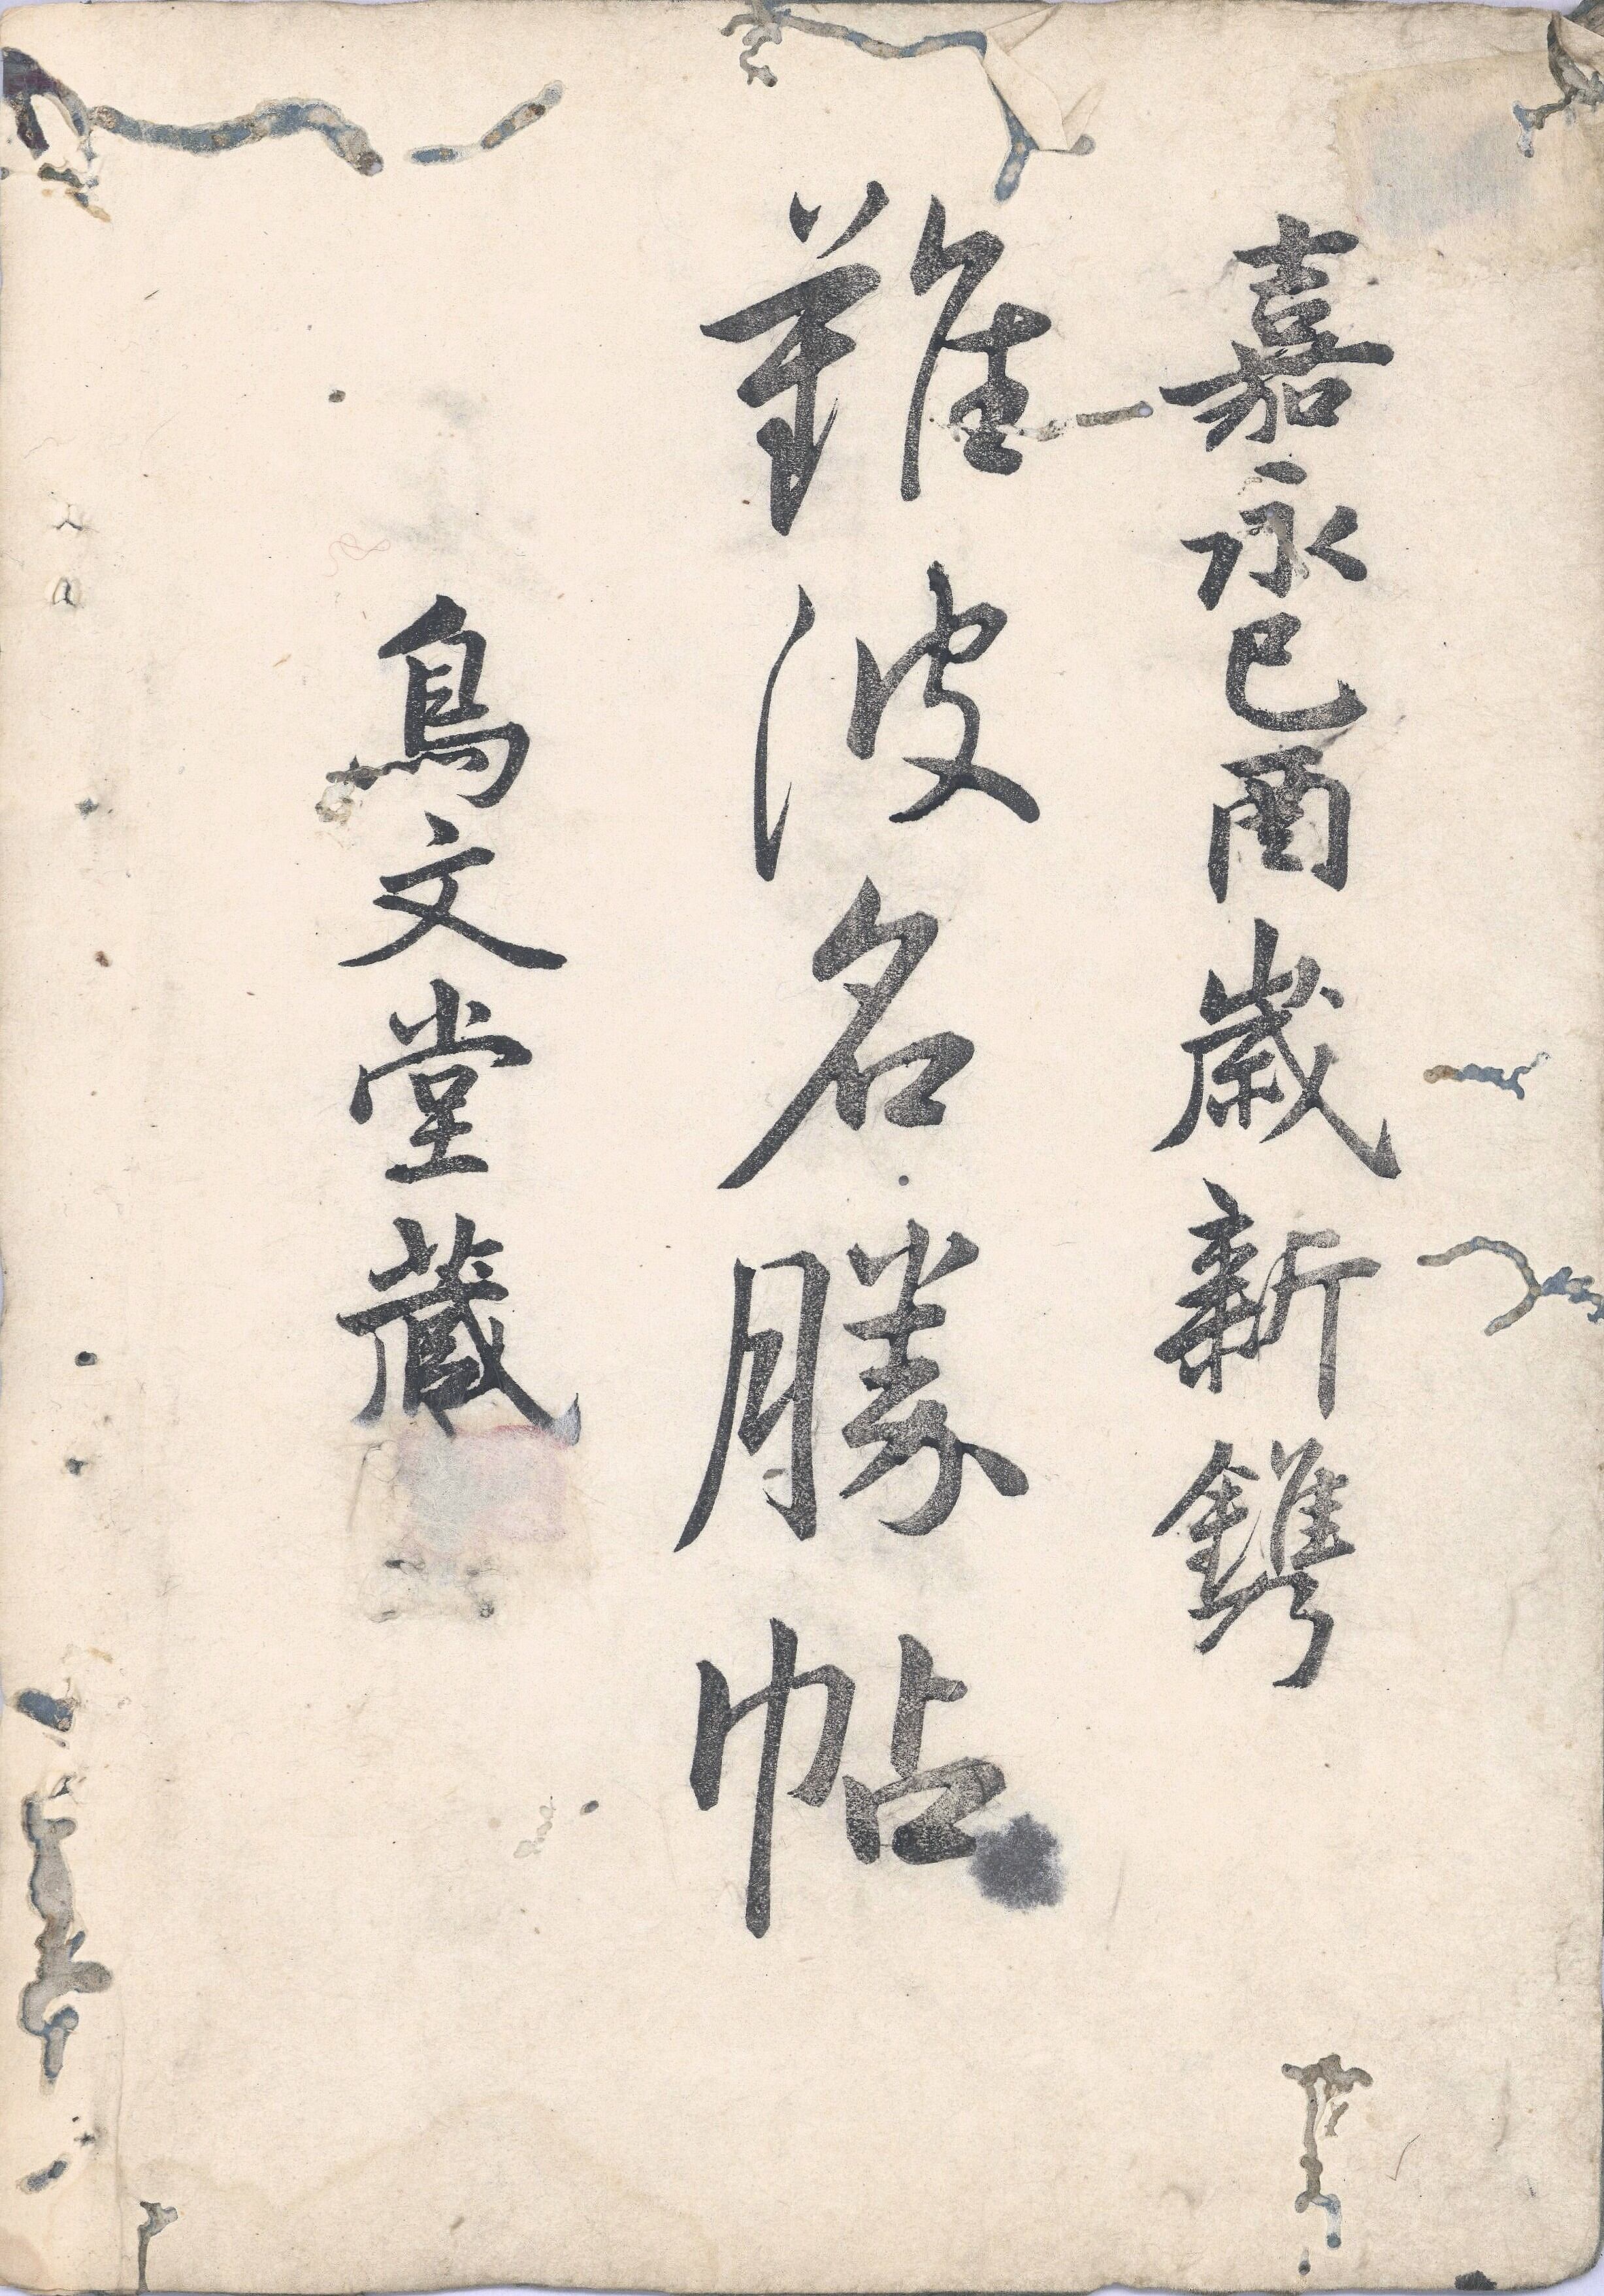 嘉永己酉歳新鐫
難波名勝帖
鳥文堂蔵